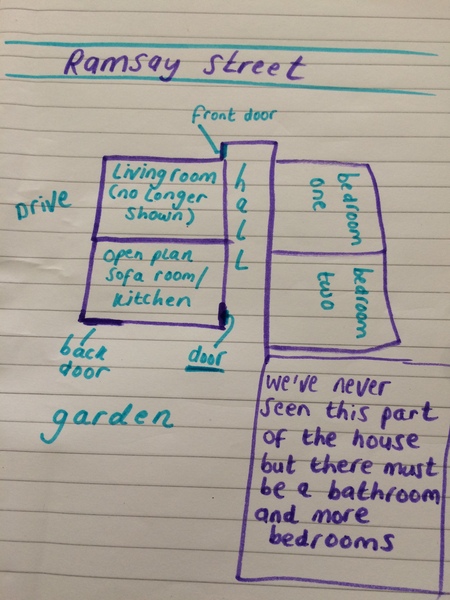 Ramsay Street
front door
Drive
Living room
(no longer
shown)
hall
bedroom
one
open plan
sofa room/
kitchen
bedroom
two
back
door
door
garden
we've never
seen this part
of the house
but there must
be a bathroom
and more
bedrooms